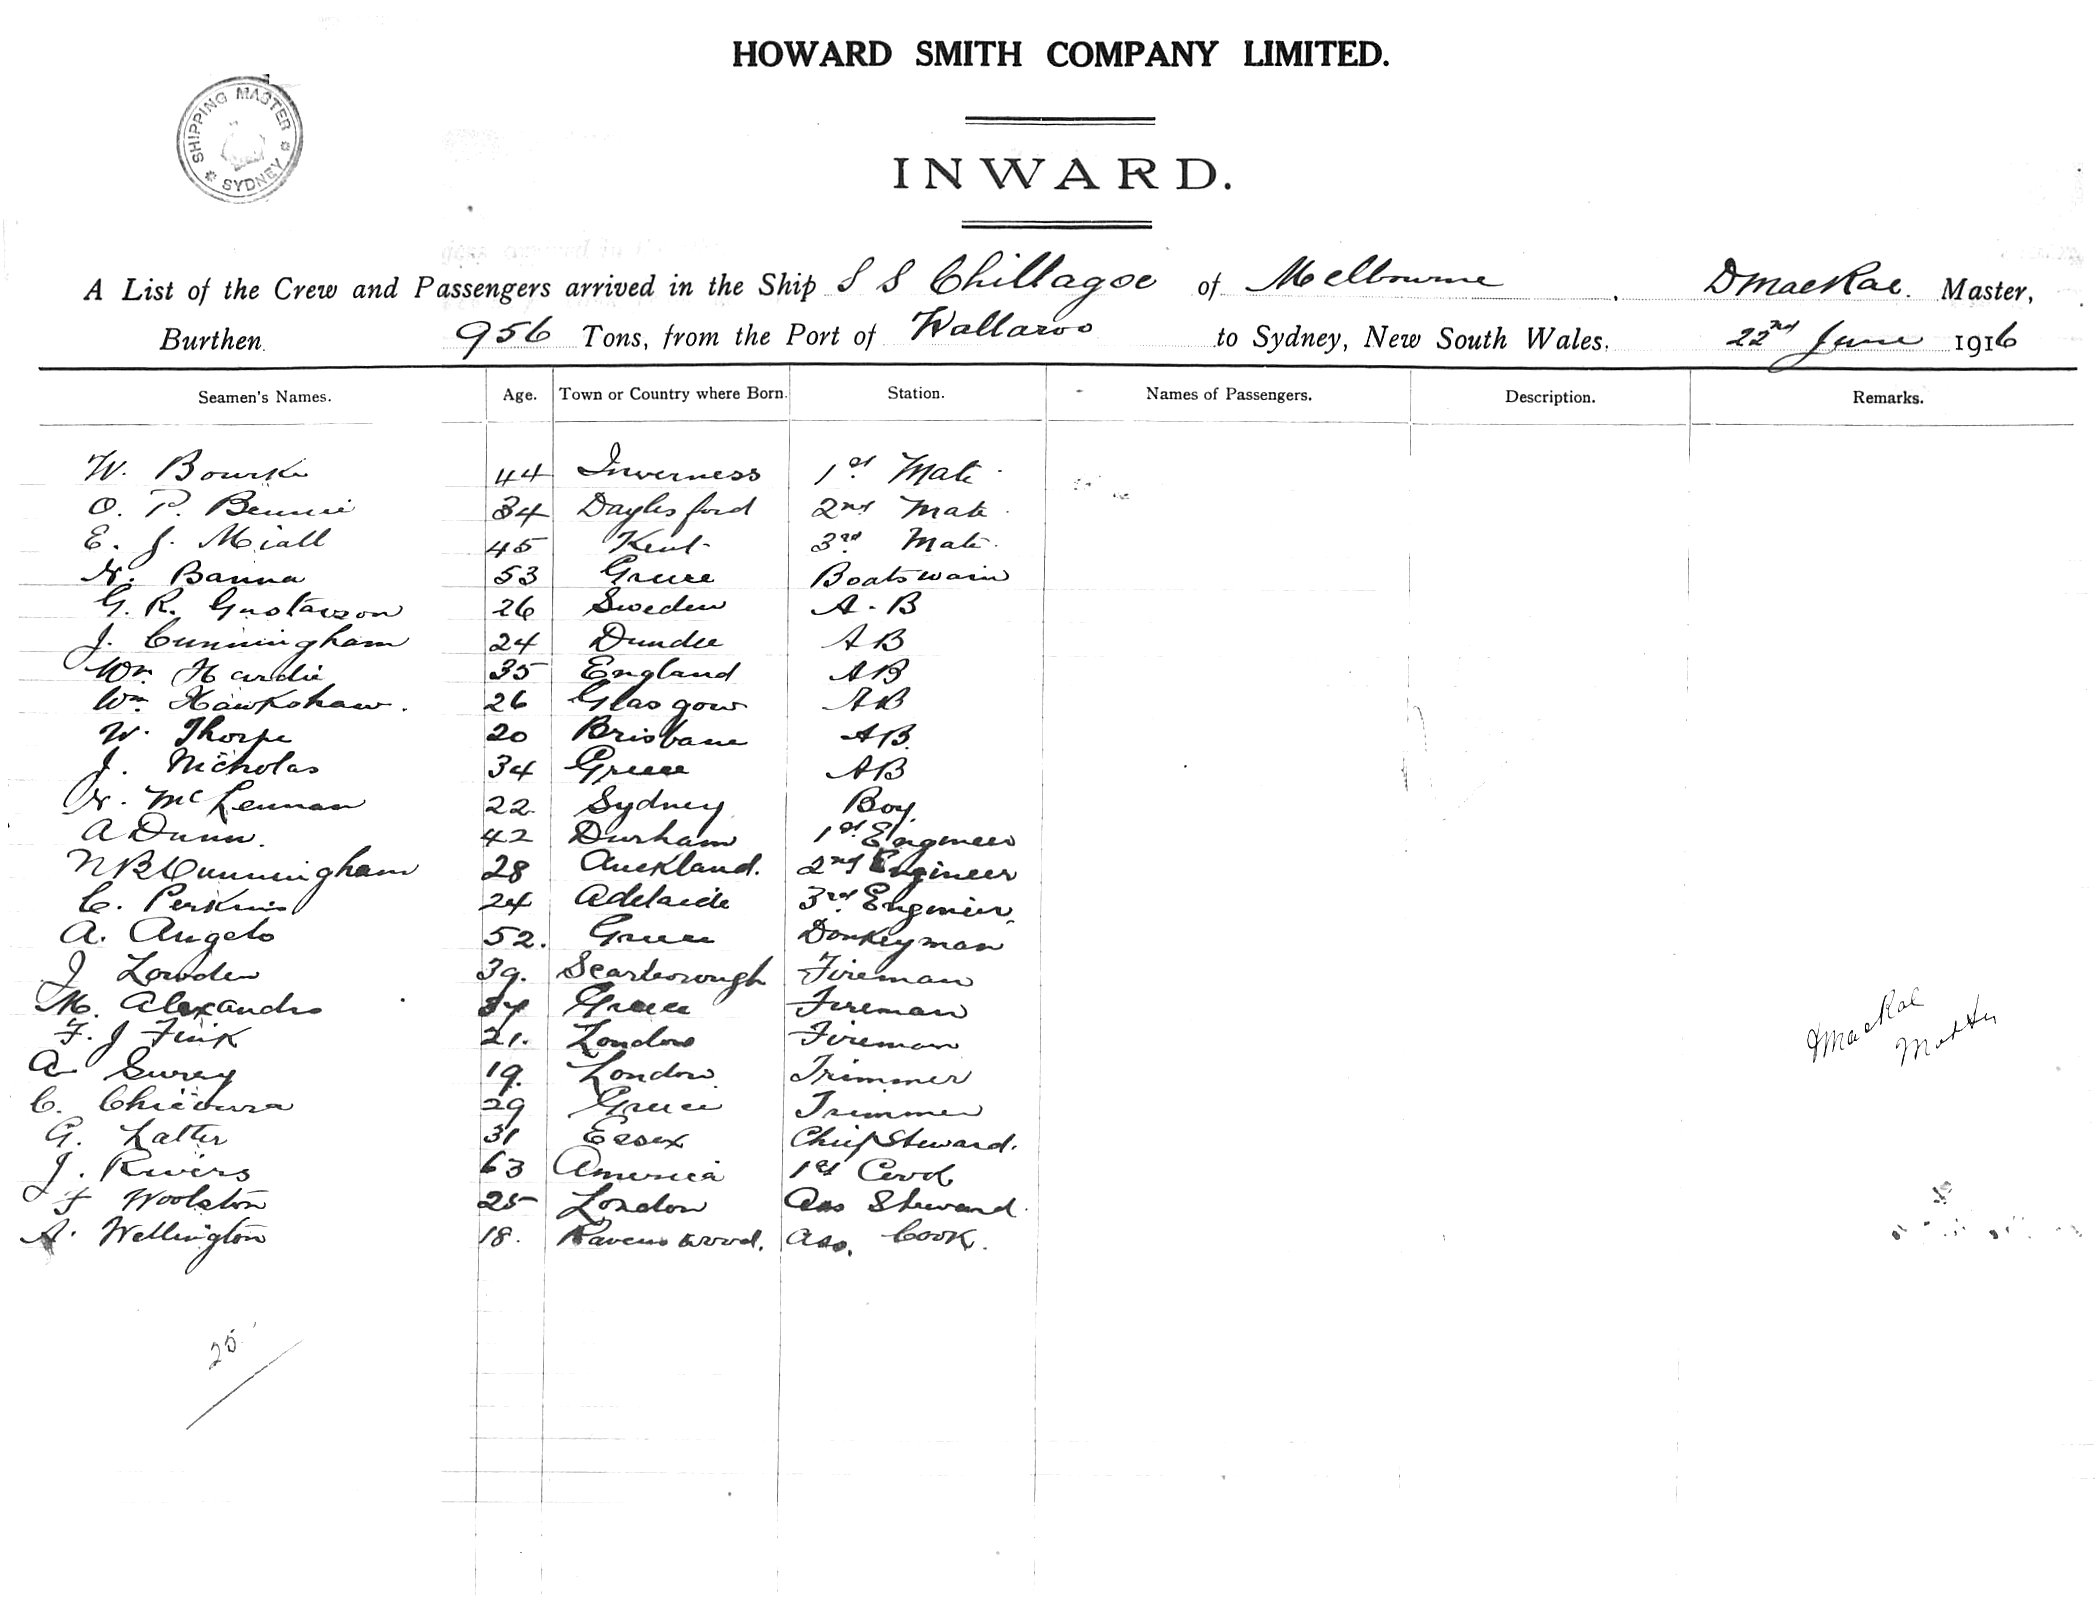 HOWARD SMITH COMPANY LIMITED.
SHIPPING MASTER SYDNEY
INWARD.
A List of the Crew and Passengers arrived in the Ship S S Chillagoe of Melbourne. DMacRae. Master,
Burthen 956 Tons, from the Port of Wallaroo to Sydney, New South Wales. 22nd June 1916
Seamen's Names. Age. Town or Country where Born. Station. Names of Passengers. Description. Remarks.
W. Bourke 44 Inverness 1st Mate
O. P. Bennie 34 Daylesford 2nd Mate
E. J. Miall 45 Kent 3rd Mate
N. Banna 53 Greece Boatswain
G. R. Gustavson 26 Sweden A.B
J. Cunningham 24 Dundee AB
Wm Hardie 35 England AB
Wm Hawkshaw. 26 Glasgow AB
W. Thorpe 20 Brisbane AB.
J. Nicholas 34 Greece AB
N. McLennan 22 Sydney Boy.
A Dunn. 42 Durham 1st Engineer
N B Cunningham 28 Auckland. 2nd Engineer
C. Perkins 24 Adelaide 3rd Engineer.
A. Angelo 52. Greece Donkeyman
J Lowden 39. Scarborough Fireman
M. Alexandro 34 Greece Fireman
F. J Fink 21. London Fireman
A Surey 19. London Trimmer
C. 29 Greece Trimmer
G. Latter 31 Essex Chief Steward.
J. Rivers 63 America 1st Cook
F Woolston 25 London Ass Steward.
A. Wellington 18. Ravenswood. Ass. Cook.
DMacRae
Master
25